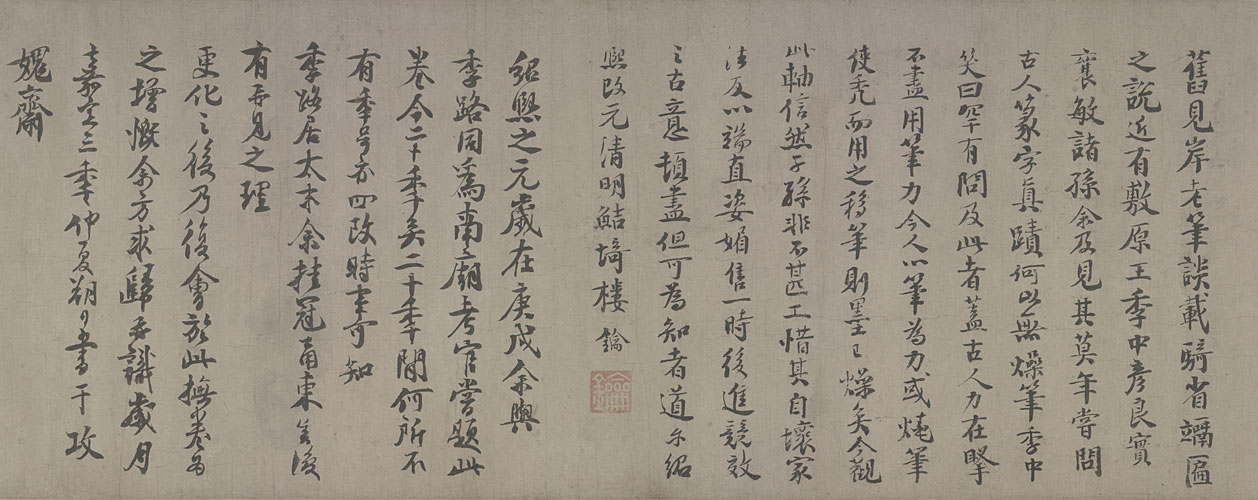 舊見岸老筆談載騎省竵匾
之說近有敷原王季中彥良實
襄敏諸孫余及見其莫年嘗問
古人篆字真蹟何以無燥筆季中
笑曰罕有問及此者蓋古人力在掔
不盡用筆力今人以筆為力或燒筆
使禿而用之移筆則墨已燥矣今觀
此軸信然子孫非不甚工惜其自壞家
法反以端直姿媚售一時後進競效
之古意頓盡但可為知者道尔紹
熙改元清明鮚埼樓鑰
紹熙之元歲在庚戌余與
季路同為南廟考官嘗題此
卷今二十季矣二十季間何所不
有季号亦四改時事可知
季路居太末余挂冠甬東無復
有再見之理
更化之後乃復會於此撫卷為
之增慨余方求歸再識歲月
嘉定三季仲夏朔日書于攻
媿齋